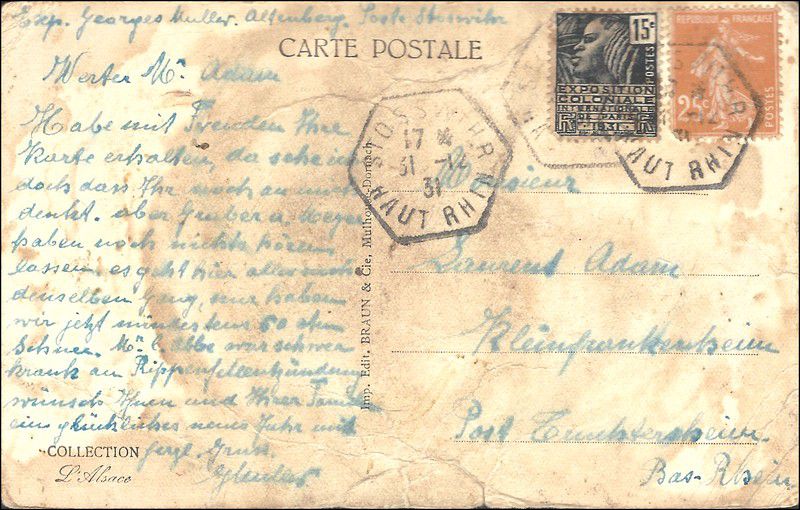 Exp. Georges Muller. Altenberg. Poste Stosswihr
CARTE POSTALE
Werter Mr Adam
Habe mit Freuden Ihre
Karte erhalten, da sehe
doch dass Ihr noch an mich
denkt. aber Gruber a. Meyer
haben noch nichts hören
lassen. es geht hier alles noch
denselben Gang, nur haben
wir jetzt mindestens 50 ctm
Schnee. Mr l'abbé war schwer
krank an Rippenfellentzündung
wünsch Ihnen und Ihrer Familie
ein glückliches neues Jahr mit
Gruss.
GMuller
COLLECTION
L'Alsace
Imp. Edit. BRAUN & Cie, Mulhouse-Dornach
15c
POSTES
EXPOSITION
COLONIALE
INTERNATIONALE
DE PARIS
1931
REPUBLIQUE FRANÇAISE
25c
POSTES
STOSSWIHR
17
31 -12
31
HAUT RHIN
HAUT RHIN
Monsieur
Laurent Adam
Kleinfrankenheim
Post Truchtersheim
Bas-Rhein